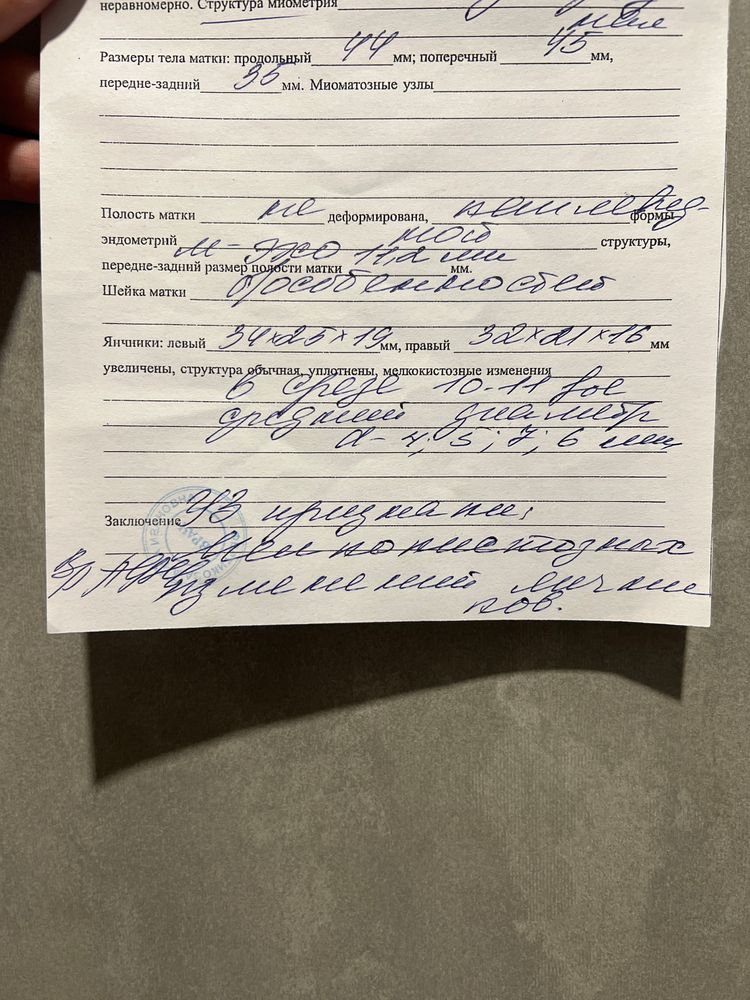 неравномерно. Структура миометрия
Размеры тела матки: продольный 44 мм; поперечный 45 мм,
передне-задний 35 мм. Миоматозные узлы
Полость матки не деформирована, формы
эндометрий структуры,
м-эхо 11,2 мм
передне-задний размер полости матки мм.
Шейка матки б/особенностей
Яичники: левый 34×25×19 мм, правый 32×21×16 мм
увеличены, структура обычная, уплотнены, мелкокистозные изменения
в срезе 10-11 фол
средний диаметр
d- 4; 5; 7; 6 мм
Заключение УЗ признаки:
мелкокистозных
изменений яични
ков.